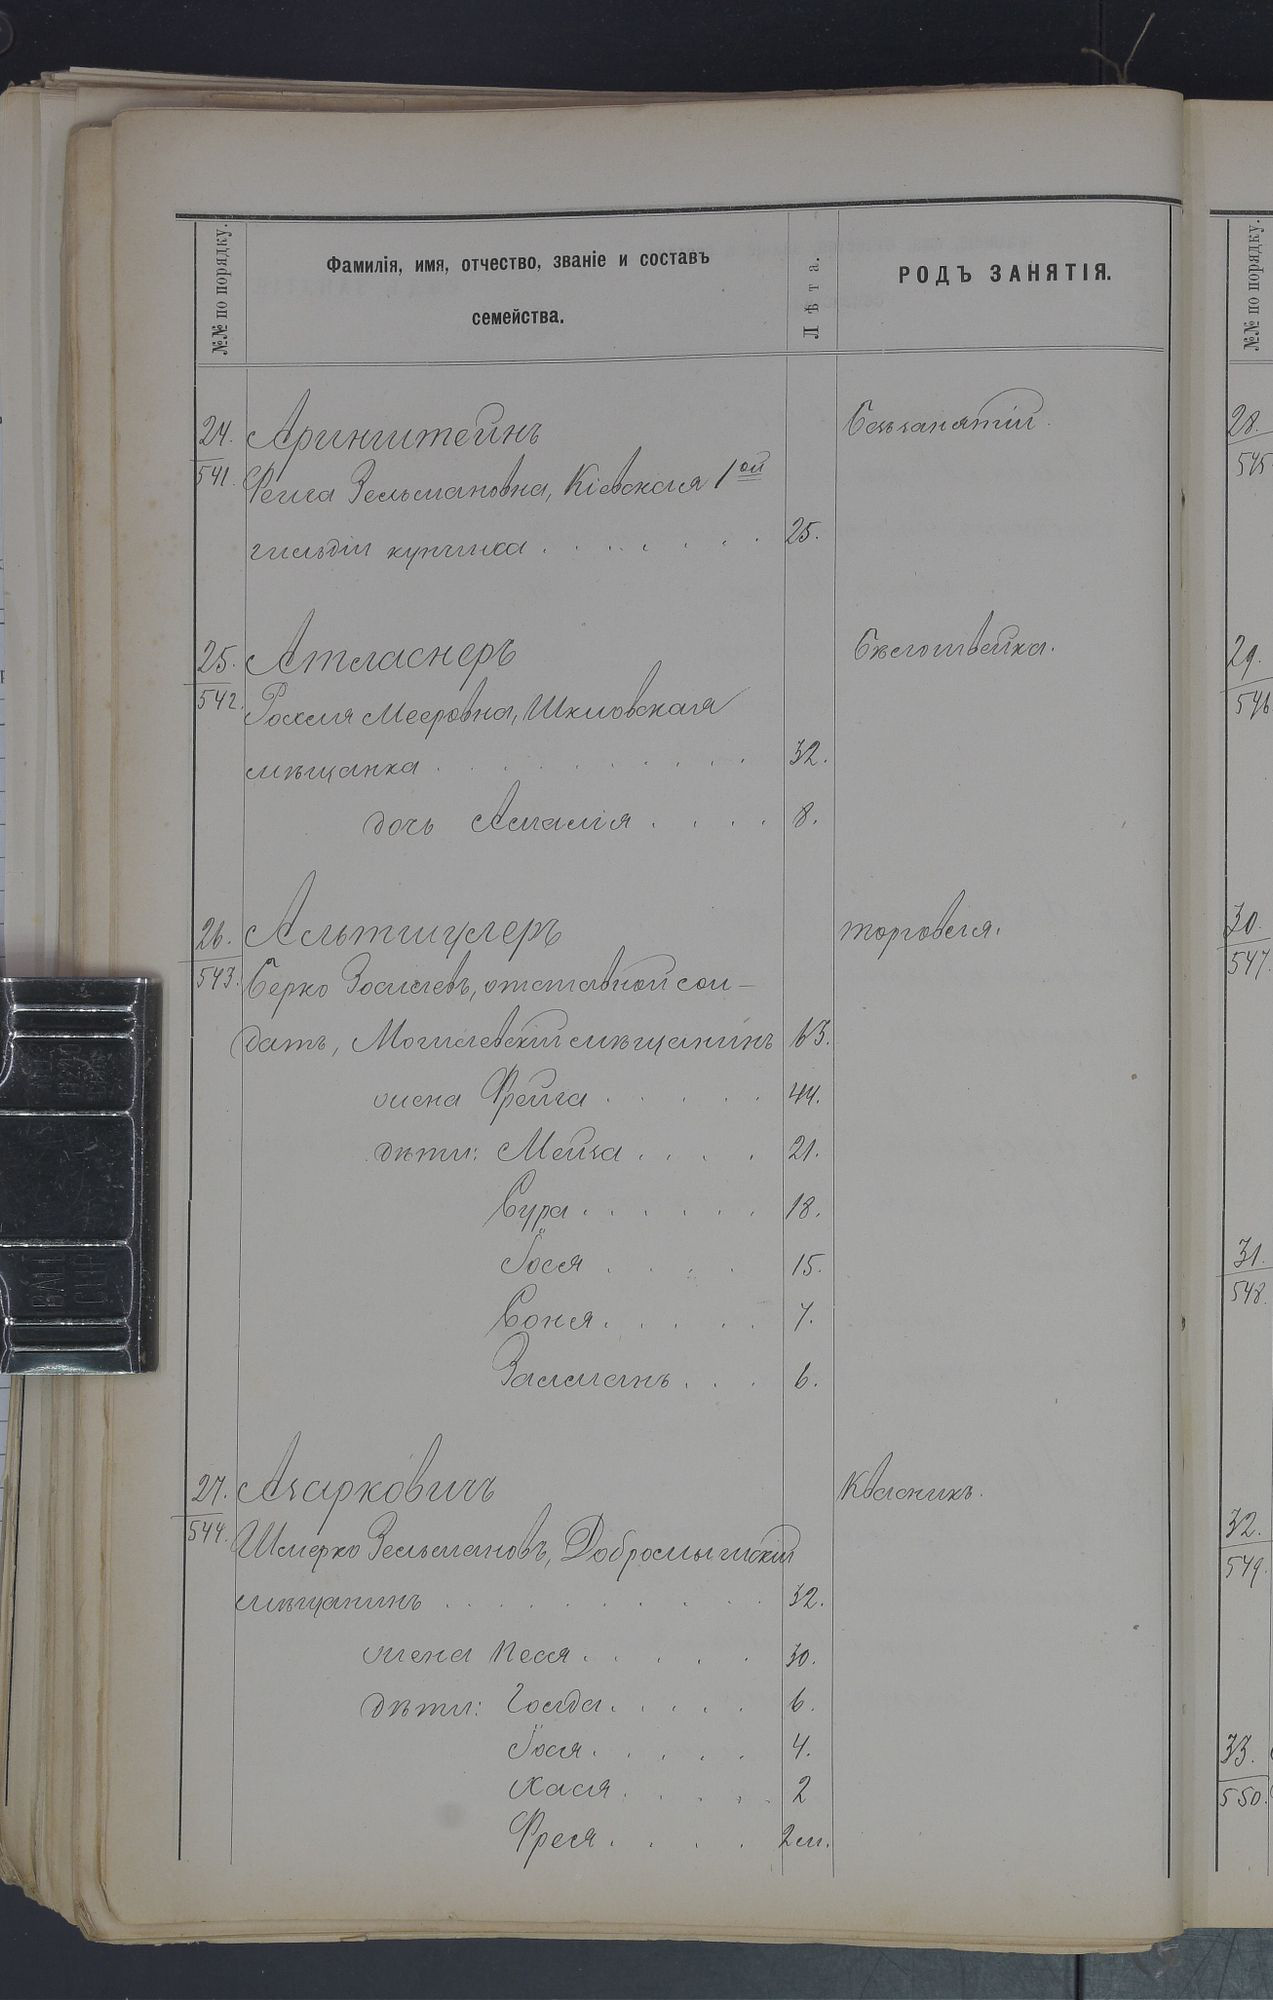 №№ по порядку.
Фамилія, имя, отчество, званіе и составъ
семейства.
Лѣта.
РОДЪ ЗАНЯТІЯ.
24. Аринштейнъ Безъ занятій.
541. Фейга Зельмановна, Кіевская 1ой
гильдіи купчиха . . . . . . . 25.
25. Атласнеръ Бѣлошвейка.
542. Рохля Мееровна, Шкловская
мѣщанка . . . . . . . . . . 32.
дочь Амалія . . . . 8.
26. Альтшулеръ торговля.
543. Берко Залмановъ, отставной сол-
датъ, Могилевскій мѣщанинъ 63.
жена Фейга . . . . . 44.
дѣти: Мейта . . . . 21.
Сура . . . . . . 18.
Гося . . . . 15.
Соня . . . . . 7.
Залманъ . . . 6.
27. Азарковичъ Квасникъ.
544. Шмерко Зельмановъ, Добромысльскій
мѣщанинъ . . . . . . . . . . . 32.
жена Песя . . . . . 30.
дѣти: Голда . . . . . 6.
Гося . . . . . 4.
Хася . . . . . 2
Фрея . . . . 2 м.
№№ по порядку.
28.
545
29.
546
30.
547.
31.
548.
32.
549.
33.
550.